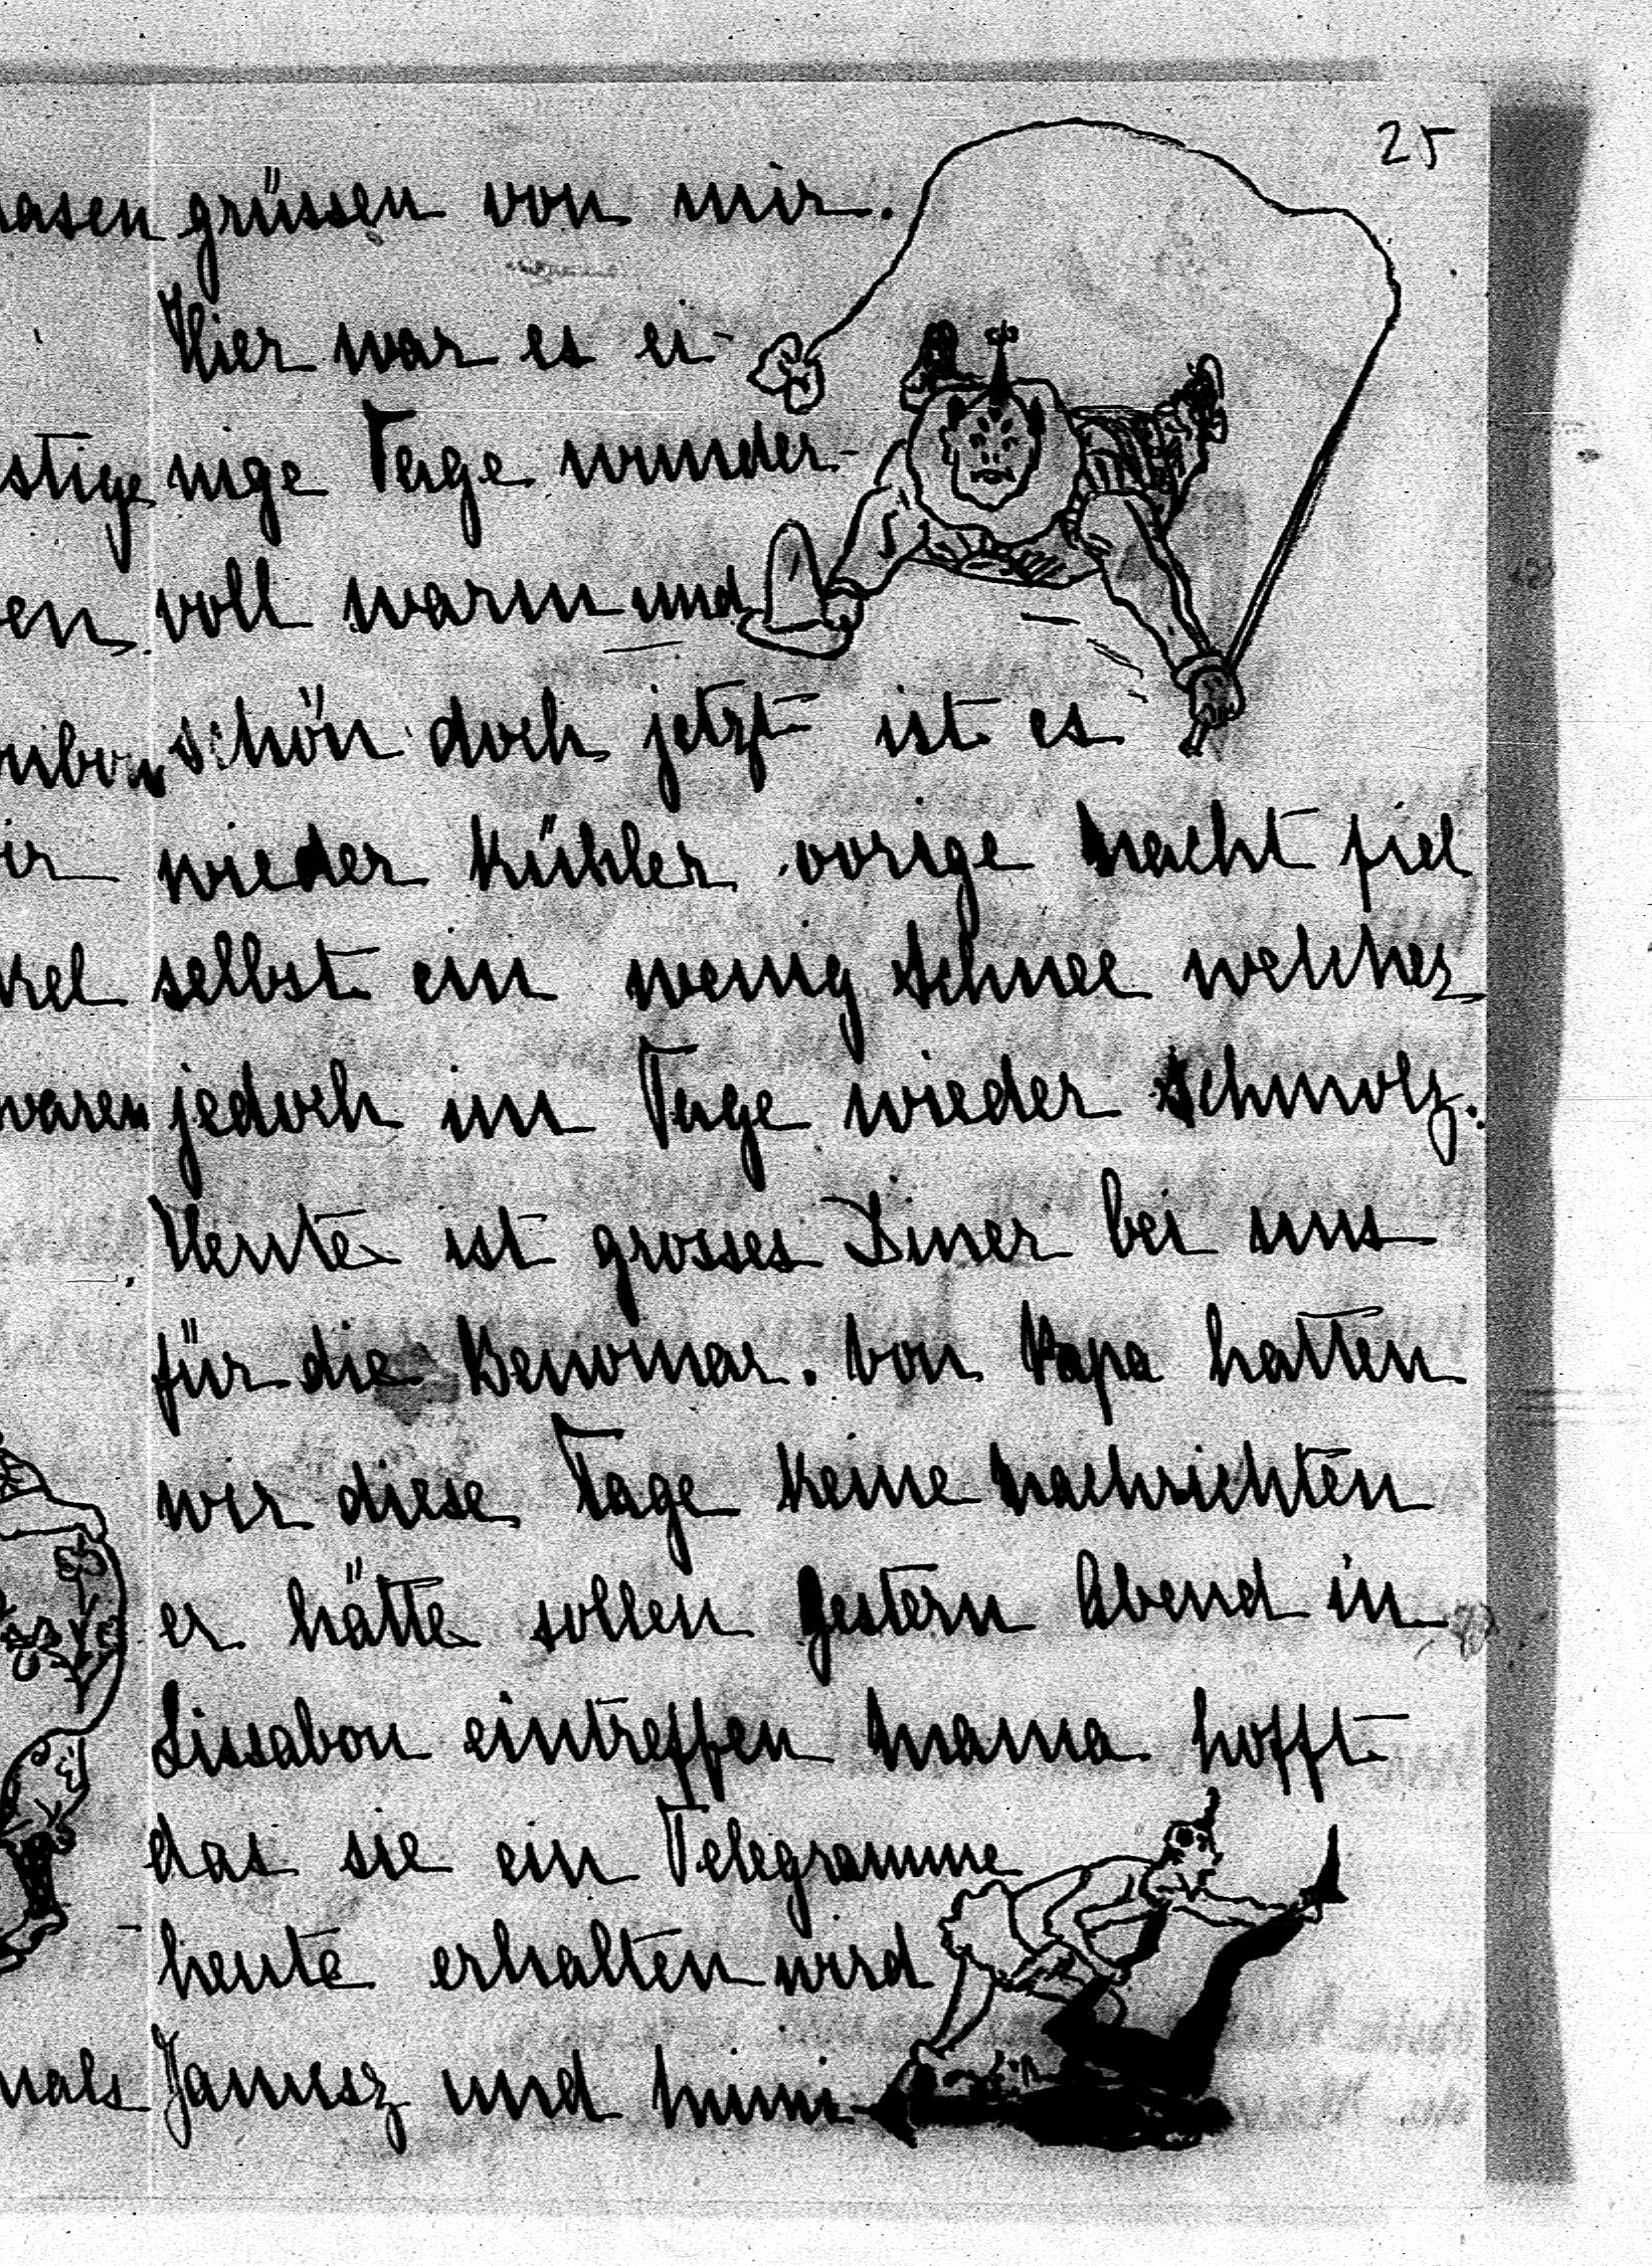 25
grüssen von mir.
Hier war es ei-
stige nige Tage wunder-
en voll warm und
schön doch jetzt ist es
ir wieder kühler vorige Nacht fiel
kel selbst ein wenig Schnee welcher
waren jedoch im Tage wieder schmolz.
Heute ist grosses Diner bei uns
für die Benomar. Von Papa hatten
wir diese Tage keine Nachrichten
er hätte sollen gestern Abend in
Lissabon eintreffen Mama hofft
das sie ein Telegramme
heute erhalten wird
mals Janusz und Mimi